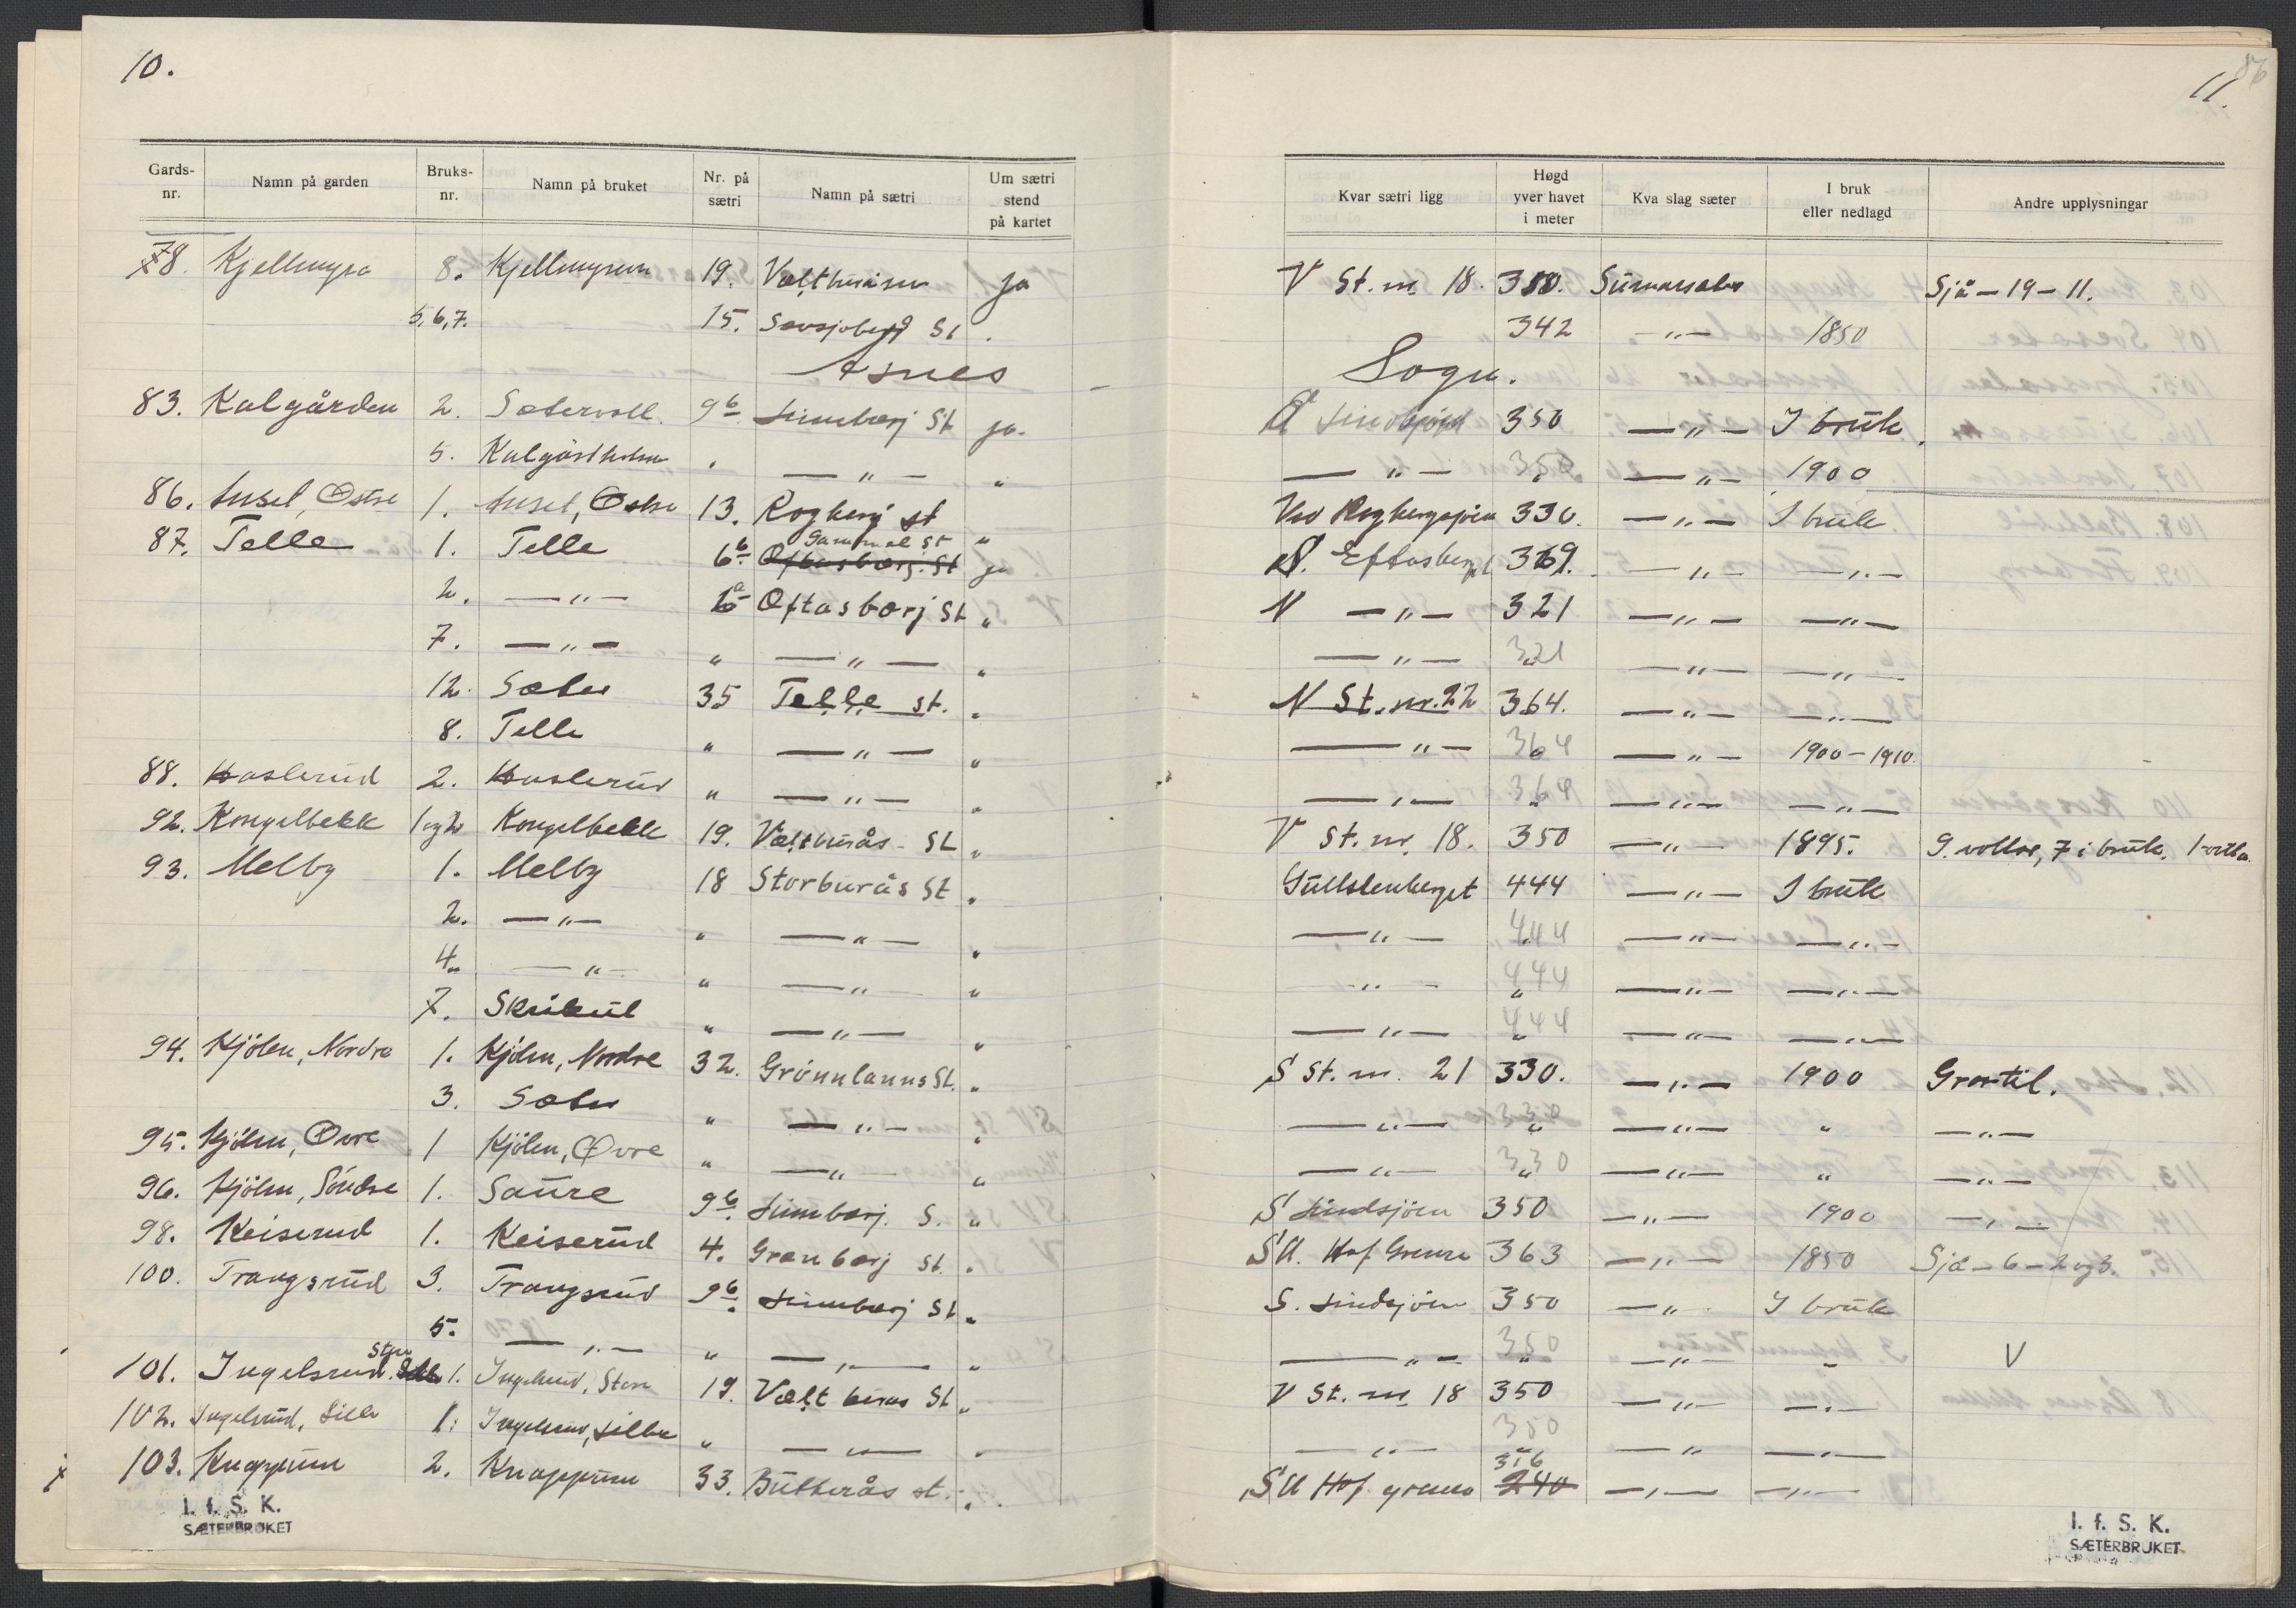 10.
Gards-nr. Namn på garden Bruks-nr. Namn på bruket Nr. på sætri Namn på sætri Um sætri stend på kartet
78. Kjellmyra 8. Kjellmyren 19. ja
5,6,7. 15. St .
Åsnes
83. Kalgården 2. Sætervoll 9b St ja.
5. " — " — "
86. Østre 1. Østre 13. Rogberj st "
87. Telle 1. Telle 6b Gammal St Oftasberj. St ja
2. — " — 6a Oftasbærj St "
7. — " — " — " — "
12. Sæter 35 Telle st. "
8. Telle " — " — "
88. Haslerud 2. Haslerud " — " — "
92. Kongelbekk 1 og 2 Kongelbekk 19. St "
93. Melby 1. Melby 18 Storburås St "
2. — " — " — " — "
4. — " — " — " — "
7. " — " — "
94. Kjölen, Nordre 1. Kjölen, Nordre 32. Grönnlanns St. "
3. Sæter " — " — "
95. Kjölen, Övre 1 Kjölen, Övre " — " — "
96. Kjölen, Söndre 1. 9b S. "
98. Keiserud 1. Keiserud 4. Granbærj St. "
100. Trangsrud 3. Trangsrud 9b St "
5. — " — " — " — "
101. Ingelsrud Store 1. Ingelsrud, Store 19. St "
102. Ingelsrud, Lille 1. Ingelsrud, Lille " — " — "
x 103. Knappum 2. Knappum 33. Bütterås st. "
I. f. S. K.
SÆTERBRUKET
86
11.
Kvar sætri ligg Høgd yver havet i meter Kva slag sæter I bruk eller nedlagd Andre upplysningar
V St. nr. 18. Sumarsæter Sjå - 19 - 11.
342 — " — 1850
Sogn.
350 — " — I bruk
— " — 350 — " — 1900
330. — " — I bruk
S. Eftasberget 369. — " — — " —
N — " — 321 — " — — " —
— " — 321 — " — — " —
N St. nr. 22 364. — " — — " —
— " — 364 — " — 1900 - 1910.
— " — 364 — " — — " —
V St. nr. 18. 350 — " — 1895. 9 vollar, 7 i bruk.
Gullstenberget 444 — " — I bruk
— " — 444 — " — — " —
— " — 444 — " — — " —
— " — 444 — " — — " —
S St. nr. 21 330. — " — 1900 Grortil.
— " — 330 — " — " — " —
— " — 330 — " — " — " —
S Lindsjöen 350 — " — 1900 — " —
SU. Hof Grense 363 — " — 1850 Sjå - 6 - 2 og 3.
S. Lindsjöen 350 — " — I bruk
— " — 350 — " — " V
V St. nr 18 350 — " — — " —
— " — 350 — " — — " —
SU Hof grense 316 240 — " — — " —
I. f. S. K.
SÆTERBRUKET